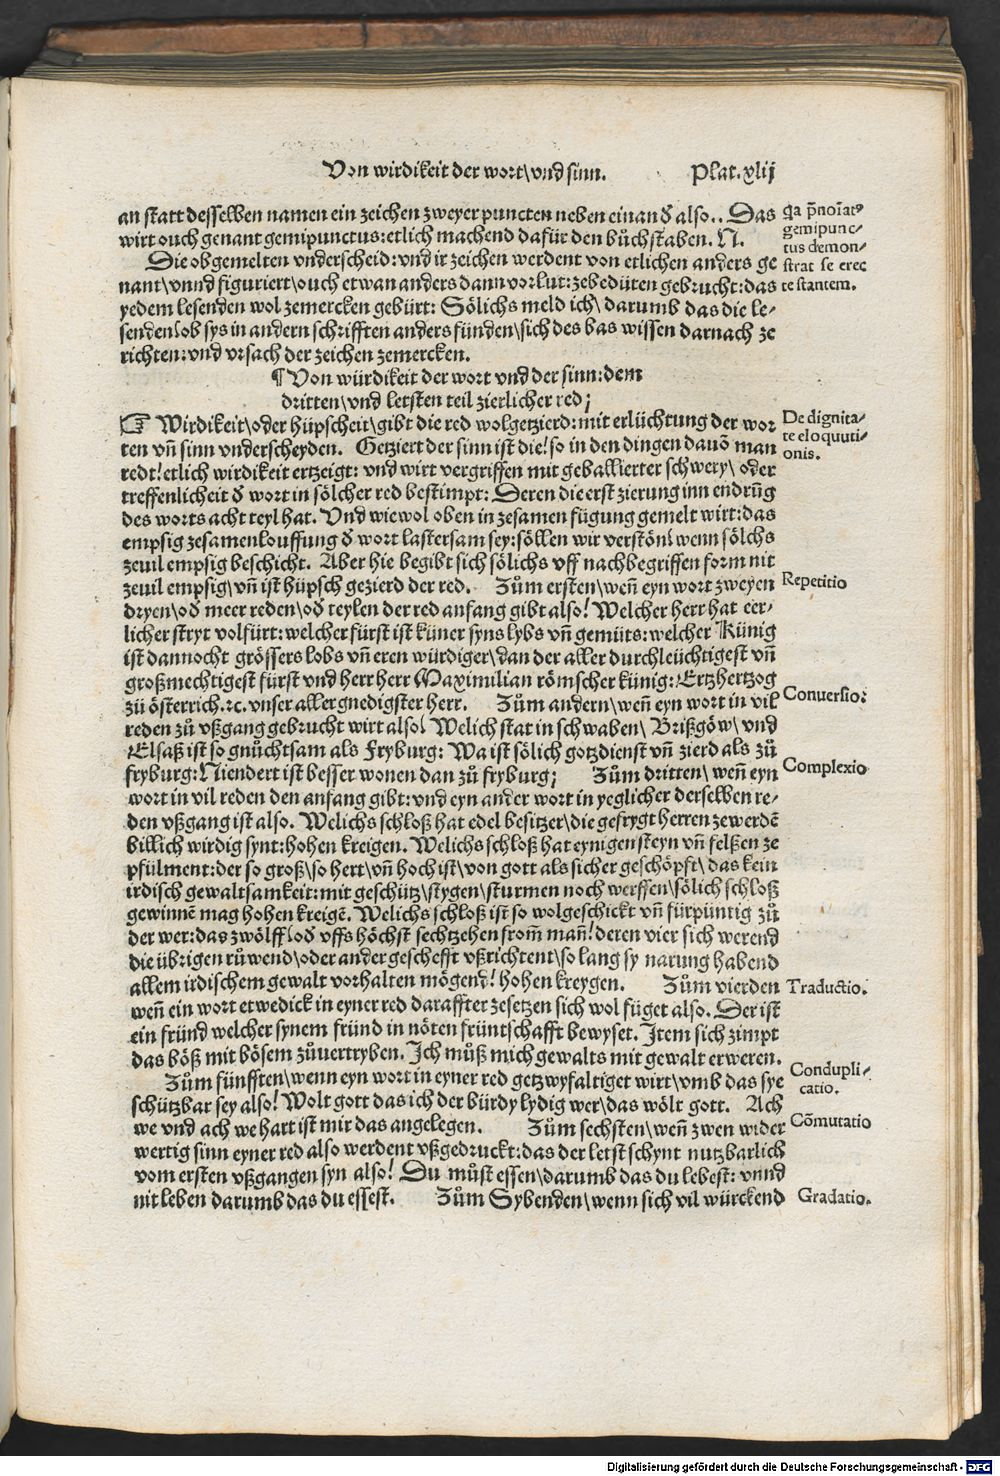 Von wirdikeit der wort\ vnd sinn. Plat. xlij
an statt desselben namen ein zeichen zweyer puncten neben einand̄ also.. Das
wirt ouch genant gemipunctus: etlich machend dafür den bůchstaben. N.
q̄a p̄noīatꝰ
gemipunc-
tus demon-
strat se erec
te stantem.
Die obgemelten vnderscheid: vnd ir zeichen werdent von etlichen anders ge
nant\ vnnd figuriert\ ouch etwan anders dann vorlut: zebedüten gebrucht: das
yedem lesenden wol zemercken gebürt: Sölichs meld ich\ darumb das die le-
senden\ ob sys in andern schrifften anders fünden\ sich des bas wissen darnach ze
richten: vnd vrsach der zeichen zemercken.
¶ Von würdikeit der wort vnd der sinn: dem
dritten\ vnd letsten teil zierlicher red;
☞ Wirdikeit\ oder hüpscheit\ gibt die red wolgetzierd: mit erlüchtung der wor
ten vn̄ sinn vnderscheyden. Getziert der sinn ist die! so in den dingen dauō man
redt! etlich wirdikeit ertzeigt: vnd wirt vergriffen mit geballierter schwery\ oder
De dignita-
te eloquuti-
onis.
treffenlicheit d̄ wort in sölcher red bestimpt: Deren die erst zierung inn endrūg
des worts acht teyl hat. Vnd wiewol oben in zesamen fügung gemelt wirt: das
empsig zesamenlouffung d̄ wort lastersam sey: söllen wir verstōn! wenn sölchs
zeuil empsig beschicht. Aber hie begibt sich sölichs vff nachbegriffen form nit
zeuil empsig\ vn̄ ist hüpsch gezierd der red. Zům ersten\ wen̄ eyn wort zweyen
Repetitio
dryen\ od̄ meer reden\ od̄ teylen der red anfang gibt also! Welcher herr hat eer-
licher stryt volfürt: welcher fürst ist küner syns lybs vn̄ gemüts: welcher Künig
ist dannocht grössers lobs vn̄ eren würdiger\ dan der aller durchleüchtigest vn̄
großmechtigest fürst vnd herr herr Maximilian römscher künig: Ertzhertzog
zů österrich. ꝛc. vnser aller gnedigster herr. Zům andern\ wen̄ eyn wort in vil
Conuersio:
reden zů vßgang gebrucht wirt also! Welich stat in schwaben\ Brißgöw\ vnd
Elsaß ist so gnůchtsam als Fryburg: Wa ist sölich gotzdienst vn̄ zierd als zů
fryburg: Niendert ist besser wonen dan zů fryburg; Zům dritten\ wen̄ eyn
Complexio
wort in vil reden den anfang gibt: vnd eyn ander wort in yeglicher derselben re-
den vßgang ist also. Welichs schloß hat edel besitzer\ die gefrygt herren zewerdē
billich wirdig synt: hohen kreigen. Welichs schloß hat eynigen steyn vn̄ felßen ze
pfülment: der so groß\ so hert\ vn̄ hoch ist\ von gott als sicher geschöpft\ das kein
irdisch gewaltsamkeit: mit geschütz\ stygen\ sturmen noch werffen\ sölich schloß
gewinnē mag hohen kreigē. Welichs schloß ist so wolgeschickt vn̄ fürpüntig zů
der wer: das zwölff\ od̄ vffs höchst sechtzehen from̄ man̄! deren vier sich werend
die übrigen růwend\ oder ander geschefft vßrichtent\ so lang sy narung habend
allem irdischem gewalt vorhalten mögend! hohen kreygen. Zům vierden
Traductio.
wen̄ ein wort etwedick in eyner red daraffter zesetzen sich wol füget also. Der ist
ein fründ welcher synem fründ in nöten früntschafft bewyset. Item sich zimpt
das böß mit bösem zůuertryben. Ich můß mich gewalts mit gewalt erweren.
Zům fünfften\ wenn eyn wort in eyner red getzwyfaltiget wirt\ vmb das sye
Condupli-
catio.
schützbar sey also! Wolt gott das ich der bürdy lydig wer\ das wölt gott. Ach
we vnd ach we hart ist mir das angelegen. Zům sechsten\ wen̄ zwen wider
Cōmutatio
wertig sinn eyner red also werdent vßgedruckt: das der letst schynt nutzbarlich
vom ersten vßgangen syn also! Du můst essen\ darumb das du lebest: vnnd
nit leben darumb das du essest. Zům Sybenden\ wenn sich vil würckend
Gradatio.
Digitalisierung gefördert durch die Deutsche Forschungsgemeinschaft - DFG